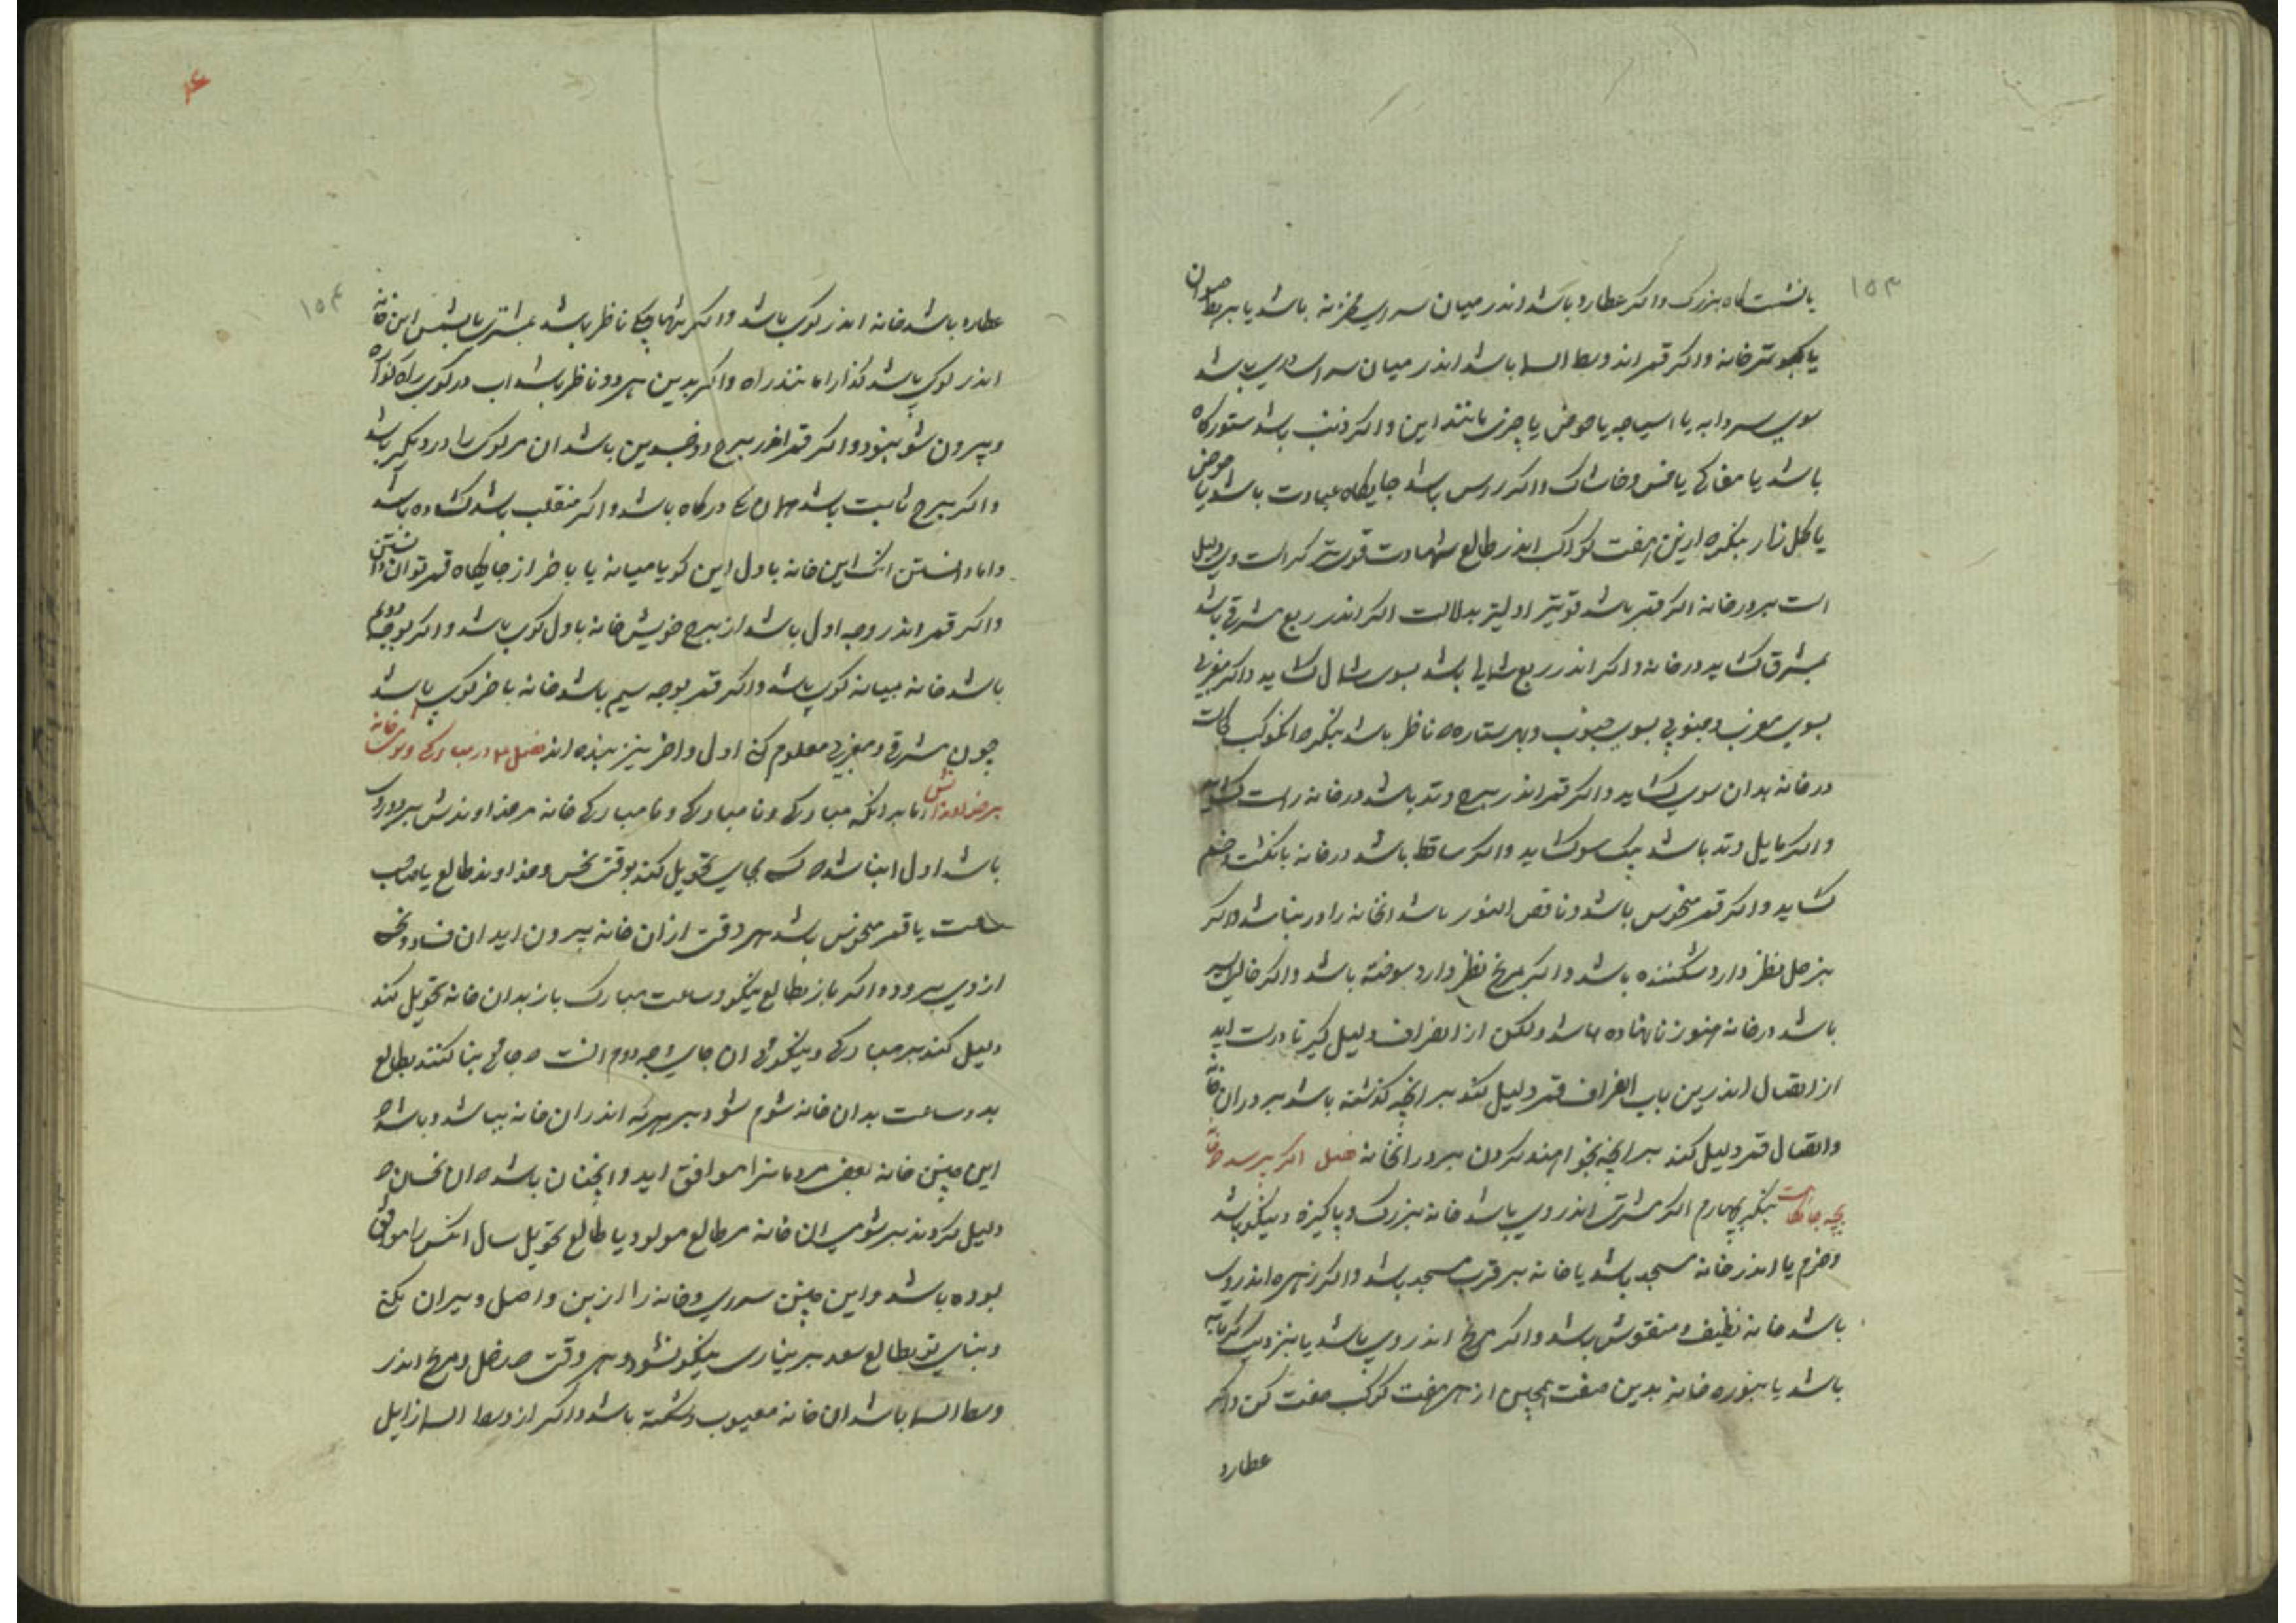 ۱۵۳
یا نشستگاه بزرک و اکر عطارد باشد اندر میان سرای خزینه باشد یا بربط صوان
یا کبوتر خانه و اکر قمر اندر وسط السما باشد اندر میان سرای باشد
سوی سردابه یا اسیاچه یا حوض یا چیزی مانند این و اکر ذنب باشد ستورکاه
باشد یا مغاکی یا خس و خاشاک و اکر راس باشد جایکاه عبادت باشد یا حوض
یا کلزار بنکر ازین هفت کوکب اندر طالع شهادت قویتر کراست وی دلیل
است بر در خانه اکر قمر باشد قویتر اولیتر بدلالت اکر اندر ربع شرقی باشد
بمشرق کشاید در خانه و اکر اندر ربع شمالی باشد بسوی شمال کشاید و اکر مغربی
بسوی مغرب و جنوبی بسوی جنوب و بهر ستاره ناظر باشد بنکر کوکب کجاست
در خانه بدان سوی کشاید و اکر قمر اندر برج وتد باشد در خانه راست کشاید
و اکر مایل وتد باشد بیک سو کشاید و اکر ساقط باشد در خانه بانکشت
کشاید و اکر قمر منحوس باشد و ناقص النور باشد انخانه را در نباشد و اکر
بزحل نظر دارد شکننده باشد و اکر بمریخ نظر دارد سوخته باشد و اکر خالی السیر
باشد در خانه هنوز نانهاده باشد ولکن از انصراف دلیل کیر تا درست اید
از اتصال اندرین باب انصراف قمر دلیل کند بر انچه کذشته باشد بر در ان خانه
و اتصال قمر دلیل کند بر انچه بخواهند کردن بر در انخانه فصل اکر پرسد خانه
بچه جایکاست بنکر بچهارم اکر مشتری اندر وی باشد خانه بزرک و پاکیزه و نیکو باشد
و خرم یا اندر خانه مسجد باشد یا خانه بر قرب مسجد باشد و اکر زهره اندر وی
باشد خانه نظیف و منقوش باشد و اکر مریخ اندر وی باشد یا بنزدیک کرمابه
باشد یا تنوره خانه بدین صفت همچنین از هر هفت کوکب صفت کن و اکر
عطارد
۱۵۴
عطارد باشد خانه اندر کوی باشد و اکر ناظر باشد بمشتری یا بشمس این خانه
اندر کوی باشد کذارا مانند راه و اکر بدین هر دو ناظر باشد اب در کوی راه کذاره
و بیرون شو نبود و اکر قمر اندر برج ذو جسدین باشد ان مر کوی را در دیکر باشد
و اکر برج ثابت باشد همان یکی درکاه باشد و اکر منقلب باشد کشاده باشد
و اما دانستن انک این خانه باول این کو یا میانه یا باخر از جایکاه قمر توان دانستن
و اکر قمر اندر وجه اول باشد از برج خویش خانه باول کوی باشد و اکر بوجه دوم
باشد خانه میانه کوی باشد و اکر قمر بوجه سیم باشد خانه باخر کوی باشد
چون شرقی و مغربی معلوم کنی اول و اخر نیز فصل در مبارکی و شومی خانه
بر خداوندانش اما بر انکه مبارکی و نامبارکی و نامبارکی خانه مر خداوندش بر دو روی
باشد اول ان باشد کسی بجای تحویل کند بوقت نحس و خداوند طالع یا صاحب
ساعت یا قمر منحوس باشد هر وقت از ان خانه بیرون اید ان فساد و نحس
از وی برود و اکر باز بطالع نیکو و ساعت مبارک باز بدان خانه تحویل کند
دلیل کند بر مبارکی و نیکوئی ان جای وجه دوم انست جائی بنا کنند بطالع
بد و ساعت بد ان خانه شوم شود بر هرکه اندران خانه بباشد و باشد
این چنین خانه بعضی مردمانرا موافق اید و انچنان باشد ان نحسان
دلیل کردند بر شومی ان خانه مر طالع مولود یا طالع تحویل سال انکس را موافق
بوده باشد و این چنین سرای و خانه را از بن و اصل ویران نکنی
و بنای نو بطالع سعد بر نیاری نیکو نشود و هر وقت زحل و مریخ اندر
وسط السما باشد ان خانه معیوب و شکسته باشد و اکر از وسط السما زایل